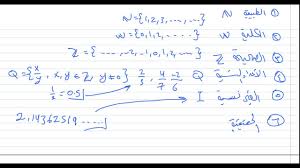 ① الطبيعية N   N = {1, 2, 3, ... , ...}
② الكلية W   W = {0, 1, 2, ... ...}
③ الصحيحة Z   Z = {..., -2, -1, 0, 1, 2, ...}
④ النسبية Q   Q = {x/y, x, y ∈ Z, y ≠ 0}   2/3, 4/7, -2/6
1/2 = 0.5
⑤ نسبية I
2,14362519 .....
⑥ الحقيقية